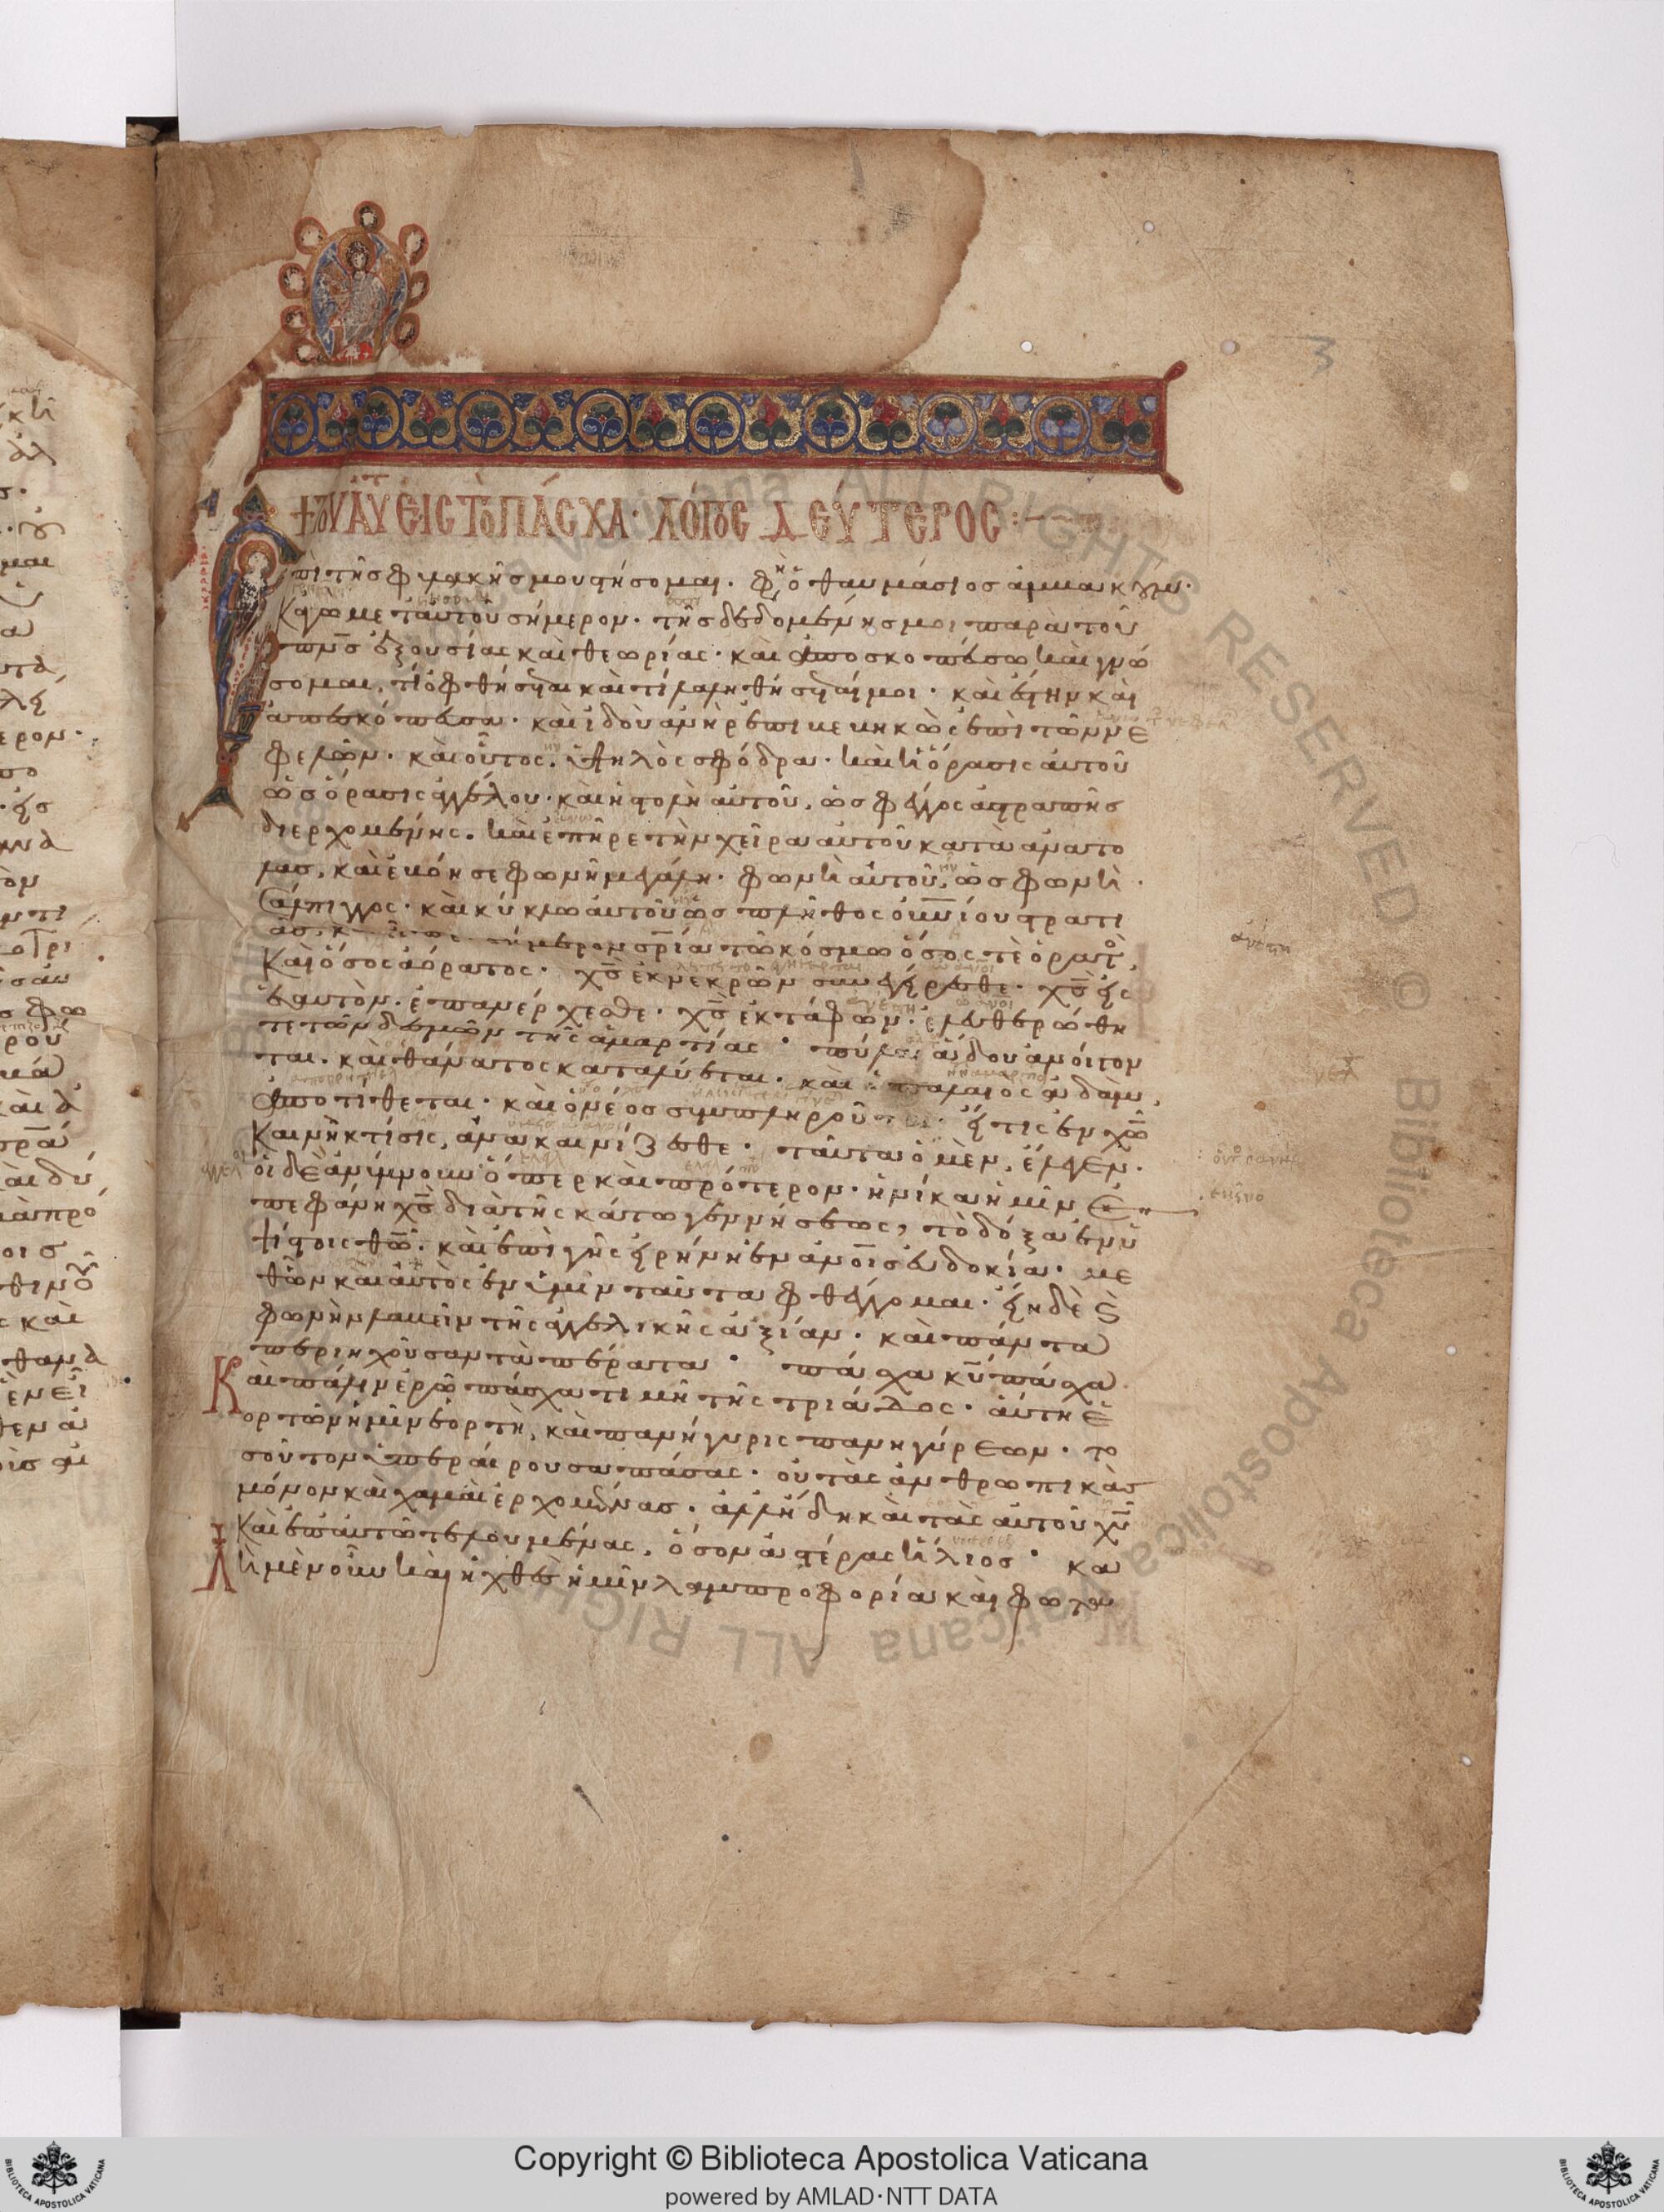 3
Α
+ τοῦ ΑΥ ΕἸΣ ΤῸ ΠΆΣΧΑ· ΛΌΓΟΣ ΔΕΎΤΕΡΟΣ :
πὶ τῆς φυλακῆς μου στήσομαι· φη ὁ θαυμάσιος ἀμβακούμ·
Κἀγὼ μετ αὐτοῦ σήμερον· τῆς δεδομένης μοι παρὰ τοῦ
πνς ἐξουσίας καὶ θεωρίας· καὶ ἀποσκοπεύσω καὶ γνώ
σομαι, τί ὀφθήσεται καὶ τί λαληθήσεταί μοι· καὶ ἔστην καὶ
ἀπεσκόπευσα· καὶ ἰδοὺ ἀνὴρ ἐπιβεβηκὼς ἐπὶ τῶν νε
φελῶν· καὶ οὗτος ὑψηλὸς σφόδρα· καὶ ἡ ὅρασις αὐτοῦ
ὡς ὅρασις ἀγγέλου· καὶ ἡ στολὴ αὐτοῦ, ὡς φέγγος ἀστραπῆς
διερχομένης· καὶ ἐπῆρε τὴν χεῖρα αὐτοῦ κατὰ ἀνατο
λὰς, καὶ ἐβόησε φωνῇ μεγάλῃ· φωνὴ αὐτοῦ, ὡς φωνὴ
σάλπιγγος· καὶ κύκλω αὐτοῦ ὡς πλῆθος οὐνίου στρατι
ᾶς· σήμερον σρία τῶ κόσμω ὅσος τὲ ὁρατὸ,
Καὶ ὅσος ἀόρατος· χς ἐκ νεκρῶν συνεγείρεσθε· χς εἰς
ἑαυτὸν· ἐπανέρχεσθε· χς ἐκ τάφων· ἐλευθερώθη
τε τῶν δεσμῶν τῆς ἁμαρτίας· πύλαι ἅδου ἀνοίγον
ται· καὶ θάνατος καταλύεται· καὶ ὁ παλαιὸς ἀδὰμ
ἀποτίθεται· καὶ ὁ νέος συμπληροῦται· εἴ τις ἐν χω
Καινὴ κτίσις, ἀνακαινίζεσθε· ταῦτα ὁ μὲν, ἔλεγεν·
οἱ δὲ ἀνύμνουν ὅπερ καὶ πρότερον· ἡνίκα ἡμῖν ἐ
πεφάνη χς διὰ τῆς κάτω γεννήσεως, τὸ δόξα ἐν ὑ
ψίστοις θω· καὶ ἐπὶ γῆς εἰρήνη ἐν ανοις εὐδοκία· με
θῶν καὶ αὐτὸς ἐν ὑμῖν ταῦτα φθέγγομαι· εἴη δὲ
φωνὴν λαβεῖν τῆς ἀγγελικῆς ἀξίαν· καὶ πάντα
περιηχοῦσαν τὰ πέρατα· πάσχα κυ πάσχα
Καὶ πάλιν ἐρῶ πάσχα τιμῆ τῆς τριάδος· αὕτη ἑ
ορτῶν ἡμῖν ἑορτὴ, καὶ πανήγυρις πανηγύρεων· το
σοῦτον ὑπεραίρουσα πάσας· οὐ τὰς ἀνθρωπικὰς
μόνον καὶ χαμαὶ ἐρχομένας· ἀλλ' ἤδη καὶ τὰς αὐτοῦ χυ
Καὶ ἐπ αὐτῶ τελουμένας, ὅσον ἀστέρας ἥλιος· κα
λὴ μὲν οὖν καὶ ἡ χθὲς ἡμῖν λαμπροφορία καὶ φωτα
Copyright © Biblioteca Apostolica Vaticana
powered by AMLAD·NTT DATA